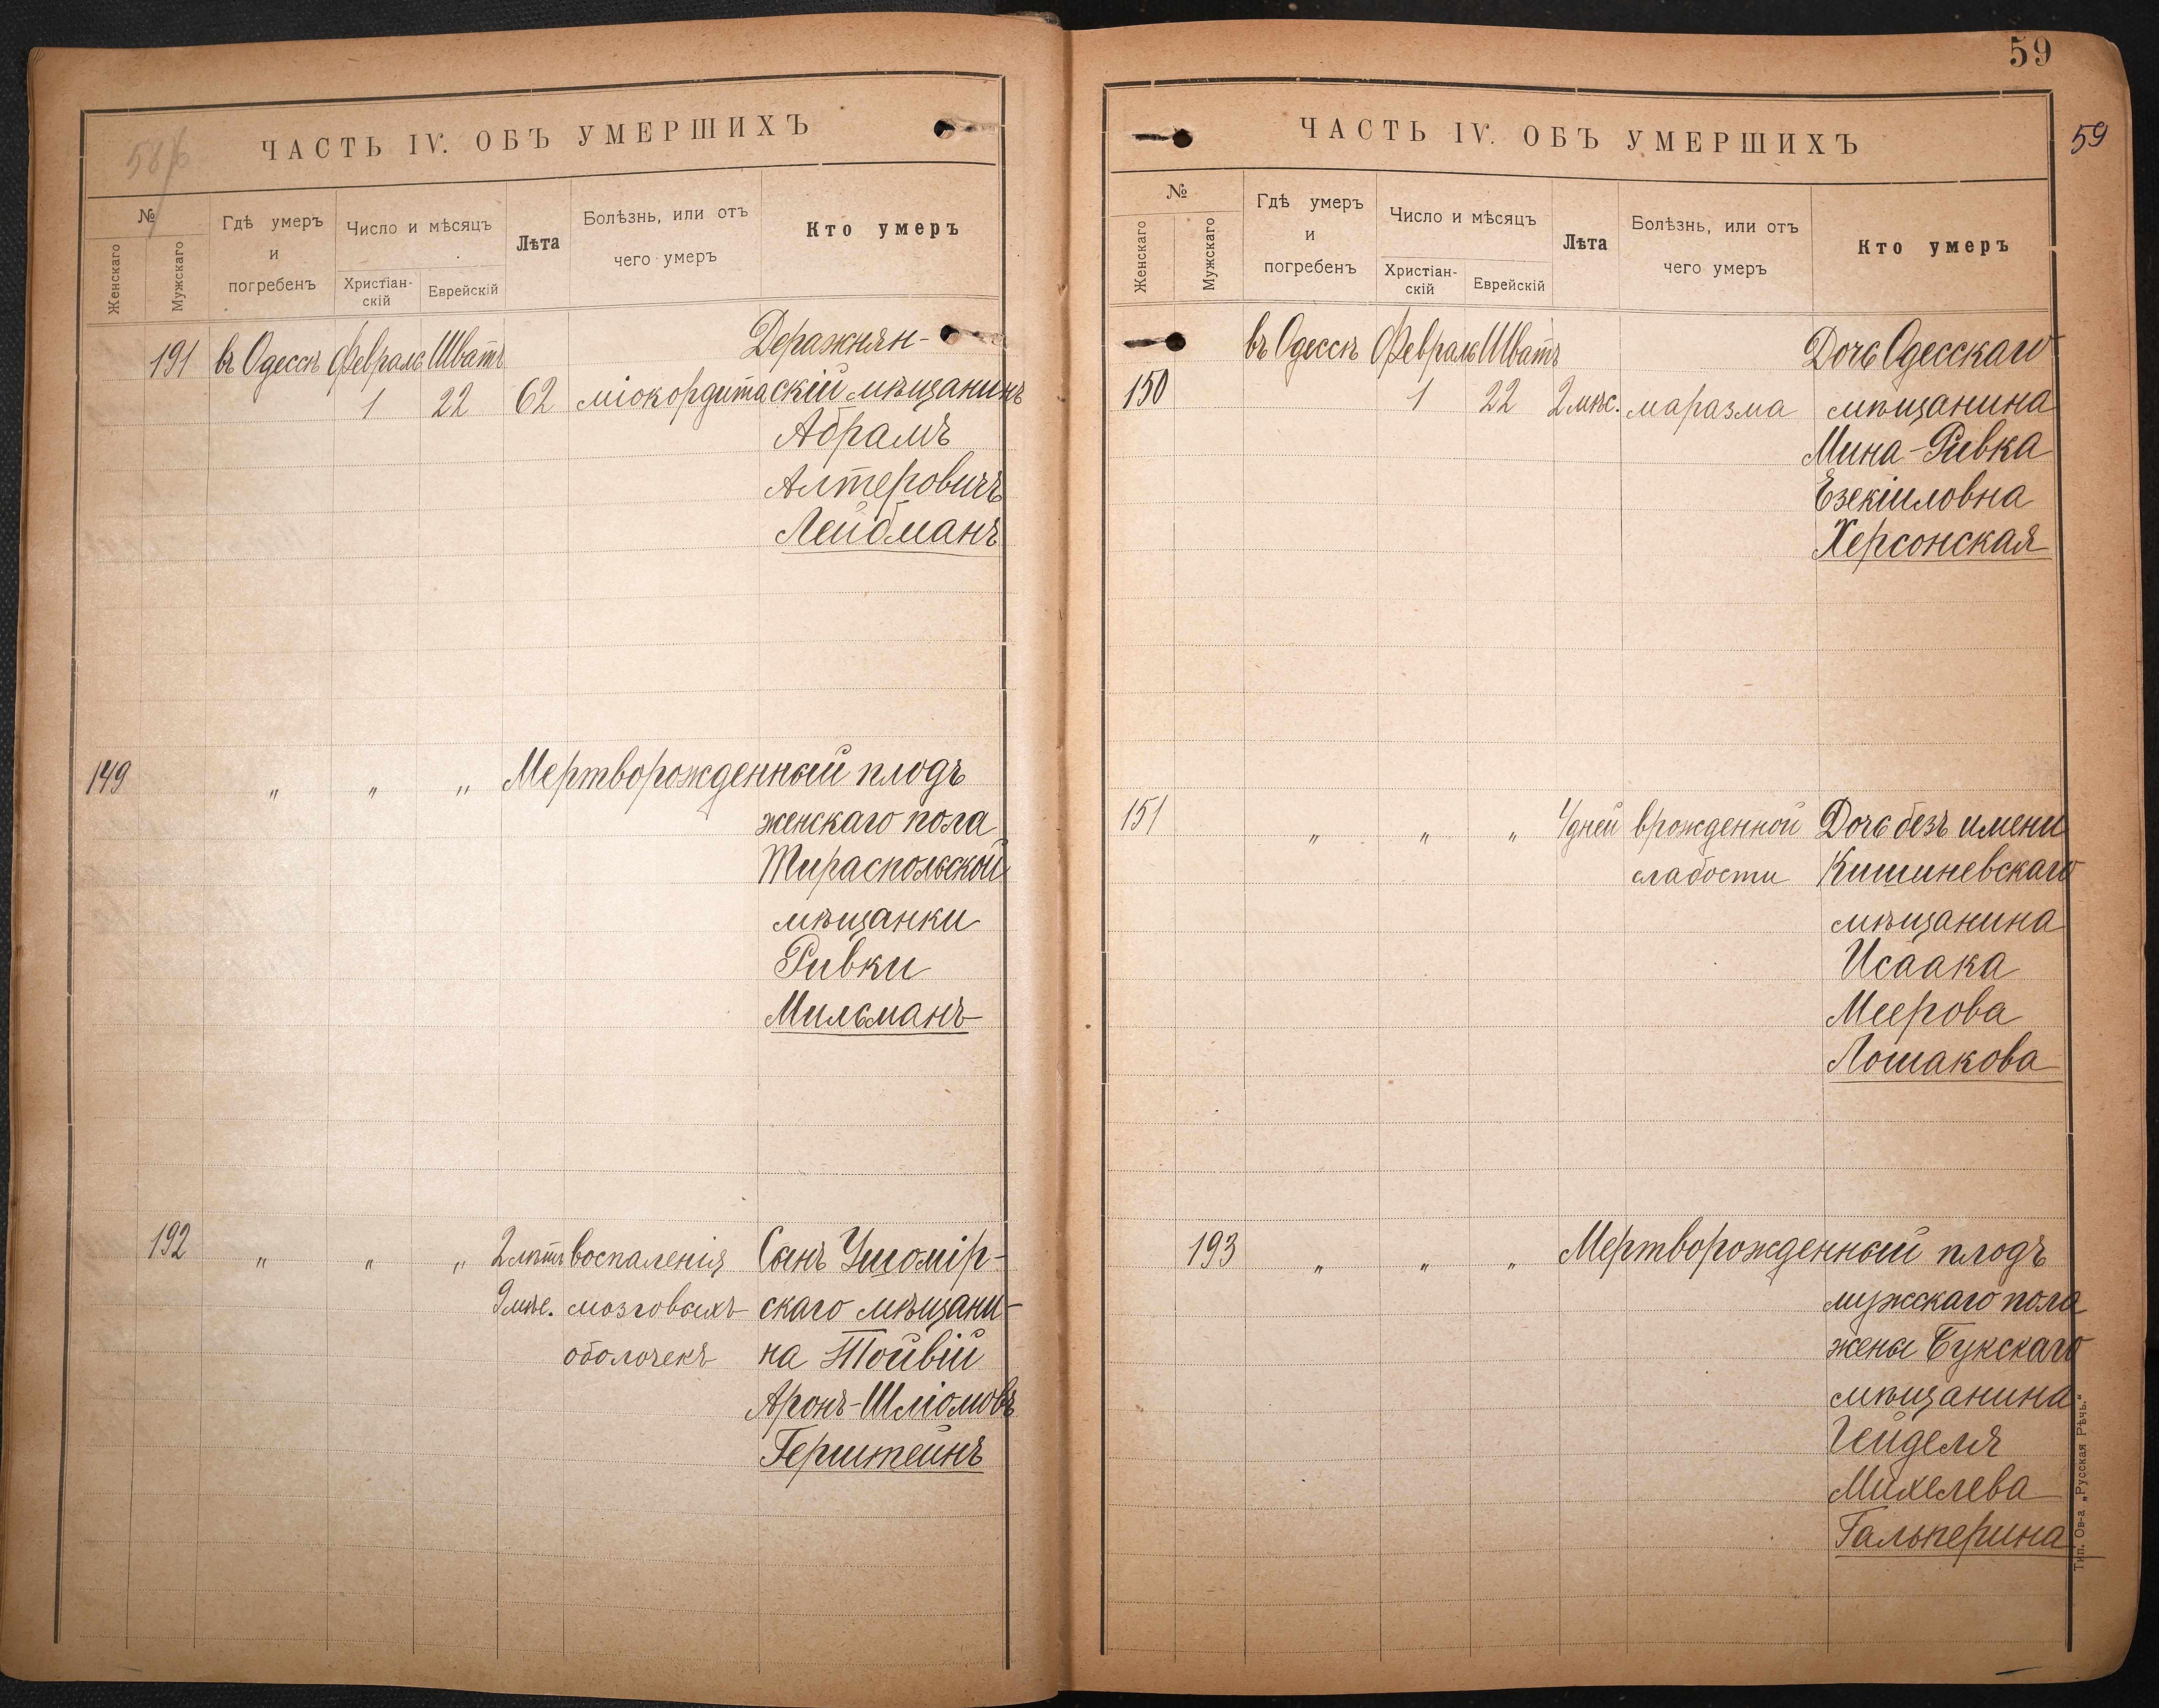 58/б
ЧАСТЬ IV. ОБЪ УМЕРШИХЪ
№
Женскаго
Мужскаго
Гдѣ умеръ
и
погребенъ
Число и мѣсяцъ
Христіан-
скій
Еврейскій
Лѣта
Болѣзнь, или отъ
чего умеръ
Кто умеръ
191 въ Одессѣ Февраль Шватъ Деражнян-
1 22 62 міокордита скій мѣщанинъ
Абрамъ
Алтеровичъ
Лейбманъ
149 " " " Мертворожденный плодъ
женскаго пола
Тираспольской
мѣщанки
Ривки
Мильманъ
192 " " " 2 лѣтъ воспаленія Сынъ Ушомір-
9 мѣс. мозговыхъ скаго мѣщани-
оболочекъ на Тойвій
Аронъ-Шліомовъ
Герштейнъ
59
59
ЧАСТЬ IV. ОБЪ УМЕРШИХЪ
№
Женскаго
Мужскаго
Гдѣ умеръ
и
погребенъ
Число и мѣсяцъ
Христіан-
скій
Еврейскій
Лѣта
Болѣзнь, или отъ
чего умеръ
Кто умеръ
въ Одессѣ Февраль Шватъ Дочь Одесскаго
150 1 22 2 мѣс. маразма мѣщанина
Мина-Ривка
Езекіиловна
Херсонская
151 " " " дней врожденной Дочь безъ имени
слабости Кишиневскаго
мѣщанина
Исаака
Меерова
Лошакова
193 " " " Мертворожденный плодъ
мужскаго пола
жены Букскаго
мѣщанина
Гейделя
Михелева
Гальперина
Тип. Ов-а „Русская Рѣчь."